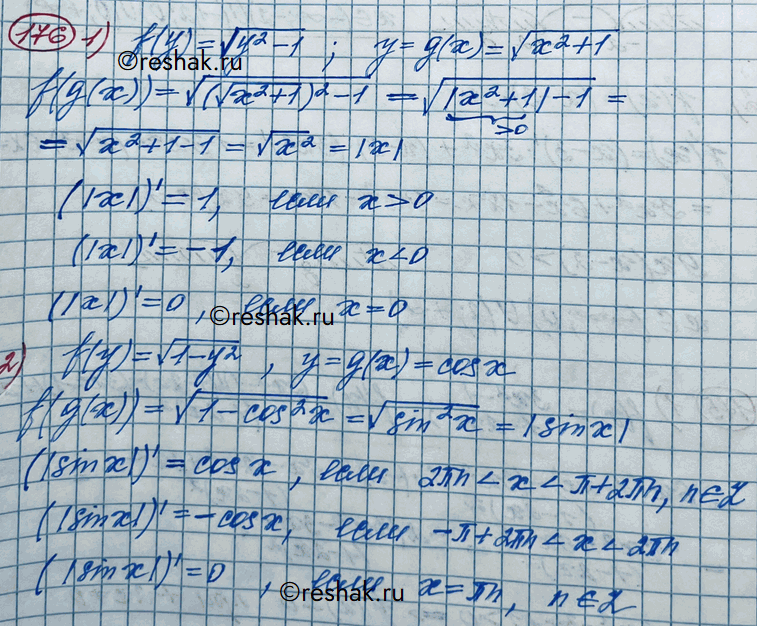 176 1) f(y) = √(y² - 1) ; y = g(x) = √(x² + 1)
©reshak.ru
f(g(x)) = √((√(x²+1))² - 1) = √(|x²+1| - 1) =
>0
= √(x²+1-1) = √x² = |x|
(|x|)' = 1, если x > 0
(|x|)' = -1, если x < 0
(|x|)' = 0, если x = 0
©reshak.ru
2) f(y) = √(1-y²) , y = g(x) = cos x
f(g(x)) = √(1 - cos²x) = √(sin²x) = |sin x|
(|sin x|)' = cos x, если 2πn < x < π + 2πn, n ∈ Z
(|sin x|)' = -cos x, если -π + 2πn < x < 2πn
(|sin x|)' = 0 , если x = πn, n ∈ Z
©reshak.ru